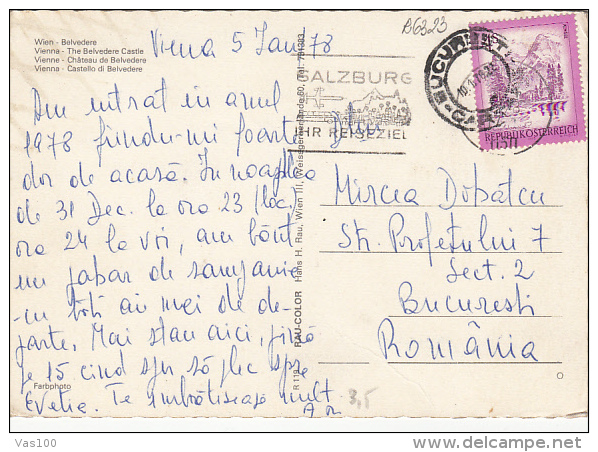 Wien - Belvedere
Vienna - The Belvedere Castle
Vienne - Château de Belvedere
Vienna - Castello di Belvedere
Viena 5 Jan 78
B6323
SALZBURG
IHR REISEZIEL
BUCUREȘTI
REPUBLIK ÖSTERREICH
Am intrat în anul
1978 fiindu-mi foarte
dor de acasă. În noaptea
de 31 Dec. la ora 23 (loc.)
ora 24 la voi, am băut
un pahar de șampanie
cu toți ai mei de de-
parte. Mai stau aici, pînă
pe 15 cînd sper să plec spre
Elveția. Te îmbrățișează mult
Mircea Dobatcu
Str. Profetului 7
Sect. 2
București
România
R 119 RAU-COLOR Hans H. Rau, Wien III, Weissgerberlände 60, Tel. 731383
Farbphoto
3,5
Vas100
delcampe.net